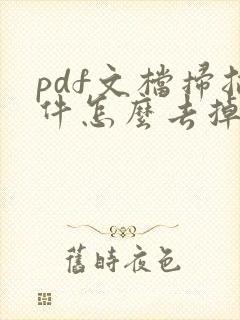 pdf文檔掃描
件怎麼去掉
舊時夜色